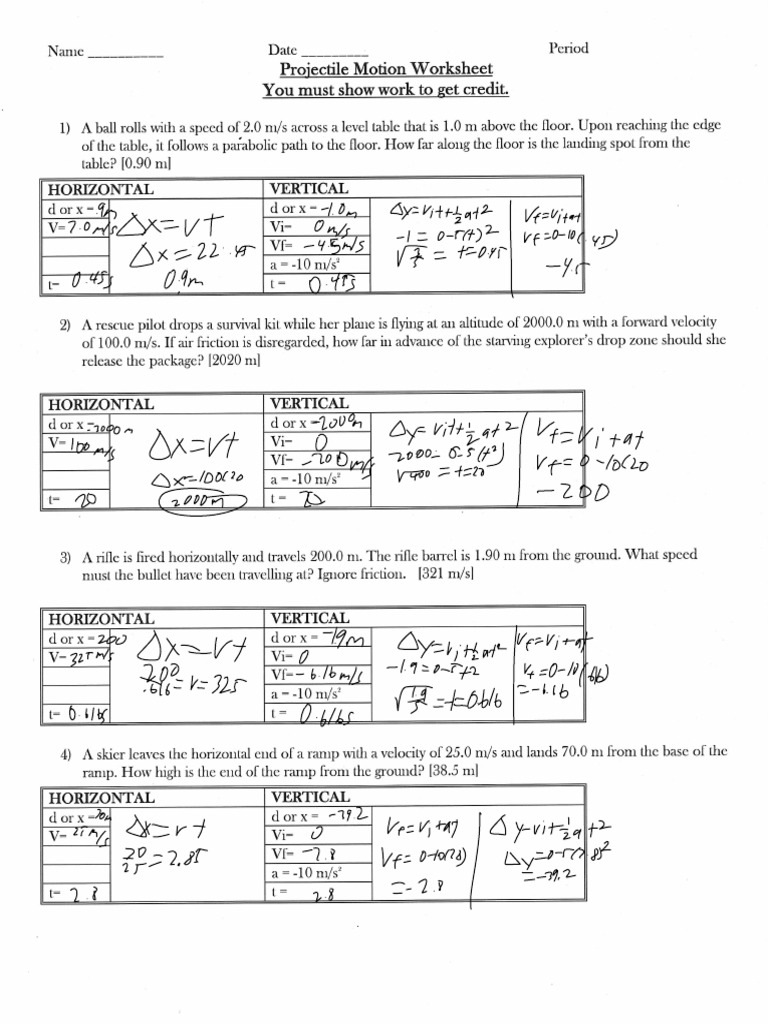 Name __________ Date _________ Period
Projectile Motion Worksheet
You must show work to get credit.
1) A ball rolls with a speed of 2.0 m/s across a level table that is 1.0 m above the floor. Upon reaching the edge
of the table, it follows a parabolic path to the floor. How far along the floor is the landing spot from the
table? [0.90 m]
HORIZONTAL VERTICAL
d or x = .9m
V= 2.0 m/s
t= 0.45s
Δx=vt
0.9m
d or x = -1.0m
Vi= 0 m/s
Vf= -4.5m/s
a = -10 m/s²
t = 0.45s
Δy=vit+½at2
-1 = 0-5(t)2
t=0.45
Vf=vi+at
Vf=0-10(.45)
-4.5
2) A rescue pilot drops a survival kit while her plane is flying at an altitude of 2000.0 m with a forward velocity
of 100.0 m/s. If air friction is disregarded, how far in advance of the starving explorer's drop zone should she
release the package? [2020 m]
HORIZONTAL VERTICAL
d or x =2000m
V=100 m/s
t= 20
Δx=vt
Δx=100(20
2000m
d or x =-2000m
Vi= 0
Vf= -200m/s
a = -10 m/s²
t = 20
Δy= vit+½at2
2000= 0-5(t²)
√400 = t=20
Vf=Vi+at
Vf=0-10(20
-200
3) A rifle is fired horizontally and travels 200.0 m. The rifle barrel is 1.90 m from the ground. What speed
must the bullet have been travelling at? Ignore friction. [321 m/s]
HORIZONTAL VERTICAL
d or x =200
V= 325 m/s
t= 0.616s
Δx=vt
200
.616 =v=325
d or x = -1.9m
Vi=0
Vf=-6.16m/s
a = -10 m/s²
t = 0.616s
Δy=vit+½at²
-1.9=0-5t2
=t=0.616
Vf=vi+at
Vf=0-10(.616)
=-6.16
4) A skier leaves the horizontal end of a ramp with a velocity of 25.0 m/s and lands 70.0 m from the base of the
ramp. How high is the end of the ramp from the ground? [38.5 m]
HORIZONTAL VERTICAL
d or x =70m
V= 25 m/s
t= 2.8
Δx=vt
=2.8s
d or x = -39.2
Vi= 0
Vf= -2.8
a = -10 m/s²
t = 2.8
Vf=Vi+at
Vf=0-10(2.8)
=-2.8
Δy=vit+½at2
=-39.2